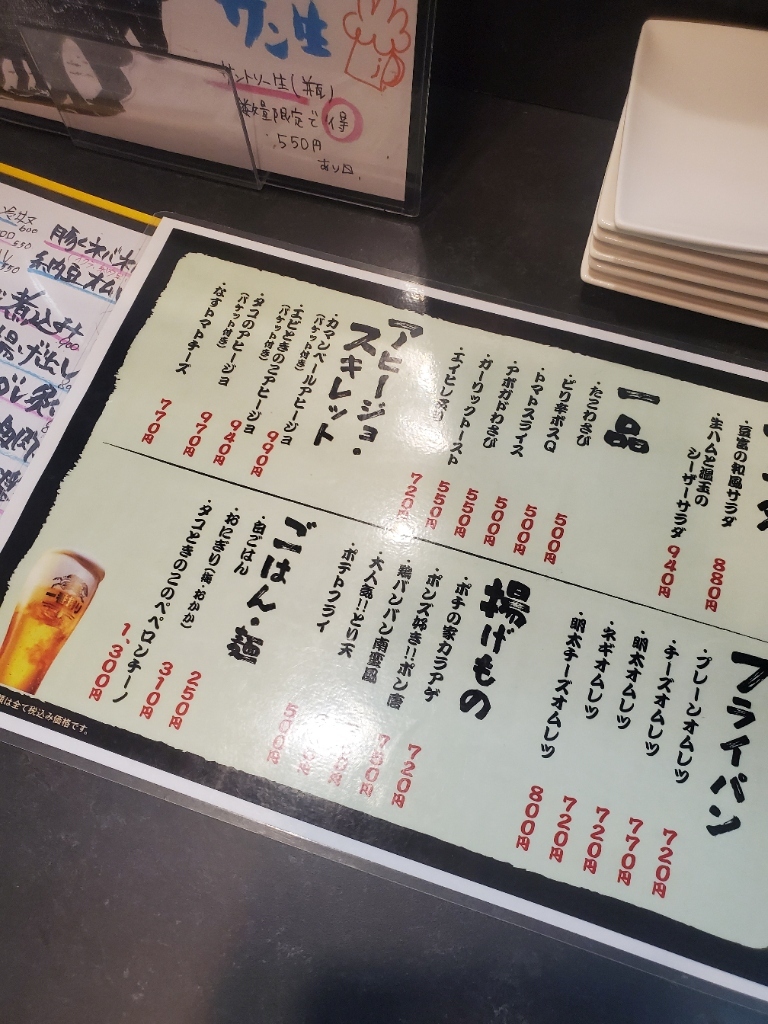 サン生
サントリー生(瓶)
数量限定で得
550円
あり〼
煮込み
揚げ出し
・豆富の和風サラダ 880円
・生ハムと温玉の
シーザーサラダ 940円
一品
・たこわさび 500円
・ピリ辛ポスQ 500円
・トマトスライス 500円
・アボガドわさび 550円
・ガーリックトースト 550円
・エイヒレ炙り 720円
アヒージョ・
スキレット
・カマンベールアヒージョ
(バケット付き) 990円
・エビときのこアヒージョ
(バケット付き) 940円
・タコのアヒージョ
(バケット付き) 970円
・なすトマトチーズ 770円
フライパン
・プレーンオムレツ 720円
・チーズオムレツ 770円
・明太オムレツ 720円
・ネギオムレツ 720円
・明太チーズオムレツ 800円
揚げもの
・ポチの家カラアゲ 720円
・ポンズ好き!!ポン唐 750円
・鶏パンパン南蛮風
・大人気!!とり天
・ポテトフライ 500円
ごはん・麺
・白ごはん 250円
・おにぎり(梅・おかか) 310円
・タコときのこのペペロンチーノ 1,300円
額は全て税込み価格です。